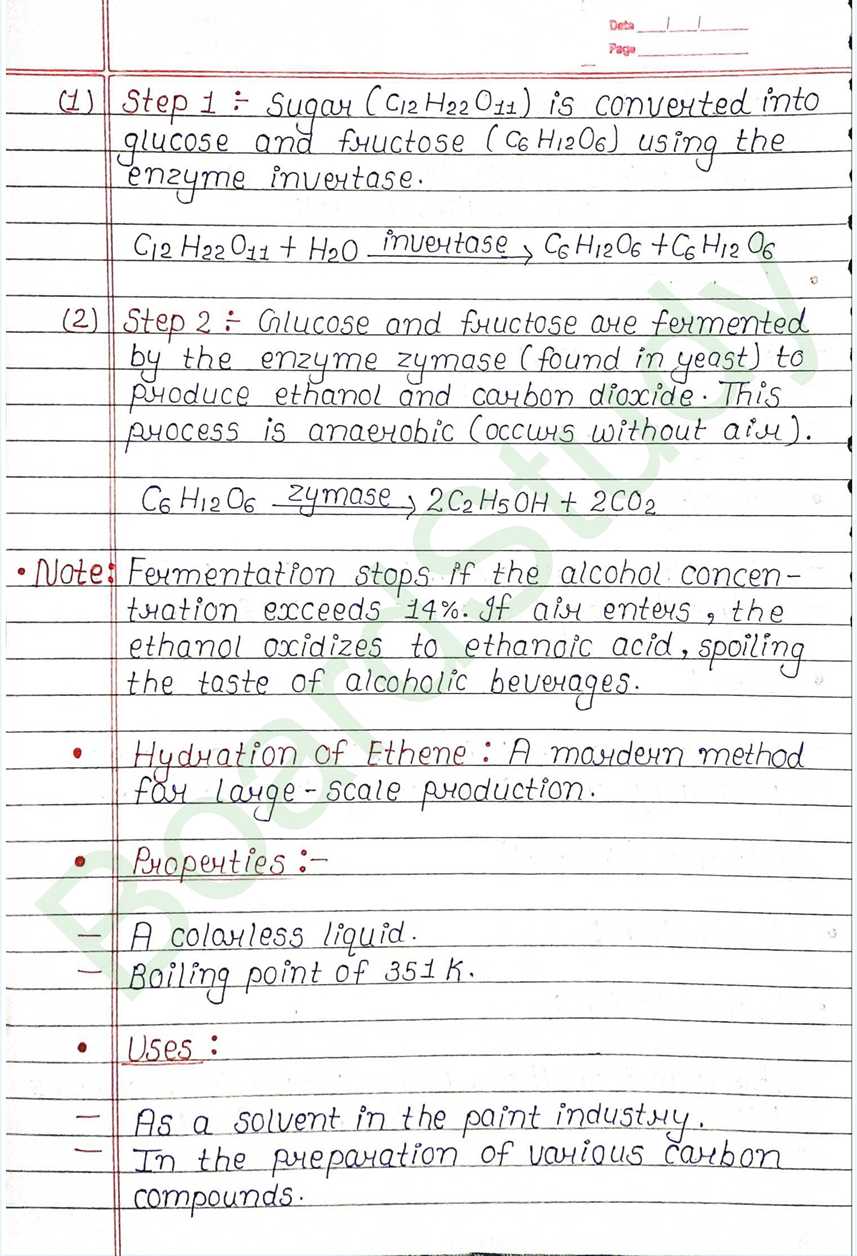 Date / /
Page
(1) Step 1 ÷ Sugar (C12 H22 O11) is converted into
glucose and fructose (C6 H12O6) using the
enzyme invertase.
C12 H22 O11 + H2O invertase → C6 H12O6 + C6 H12 O6
(2) Step 2 ÷ Glucose and fructose are fermented
by the enzyme zymase (found in yeast) to
produce ethanol and carbon dioxide. This
process is anaerobic (occurs without air).
C6 H12 O6 zymase → 2C2H5OH + 2CO2
• Note: Fermentation stops if the alcohol concen-
tration exceeds 14%. If air enters, the
ethanol oxidizes to ethanoic acid, spoiling
the taste of alcoholic beverages.
• Hydration of Ethene : A mordern method
for large-scale production.
• Properties :-
– A colorless liquid.
– Boiling point of 351 K.
• Uses :
– As a solvent in the paint industry.
– In the preparation of various carbon
compounds.
BoardStudy